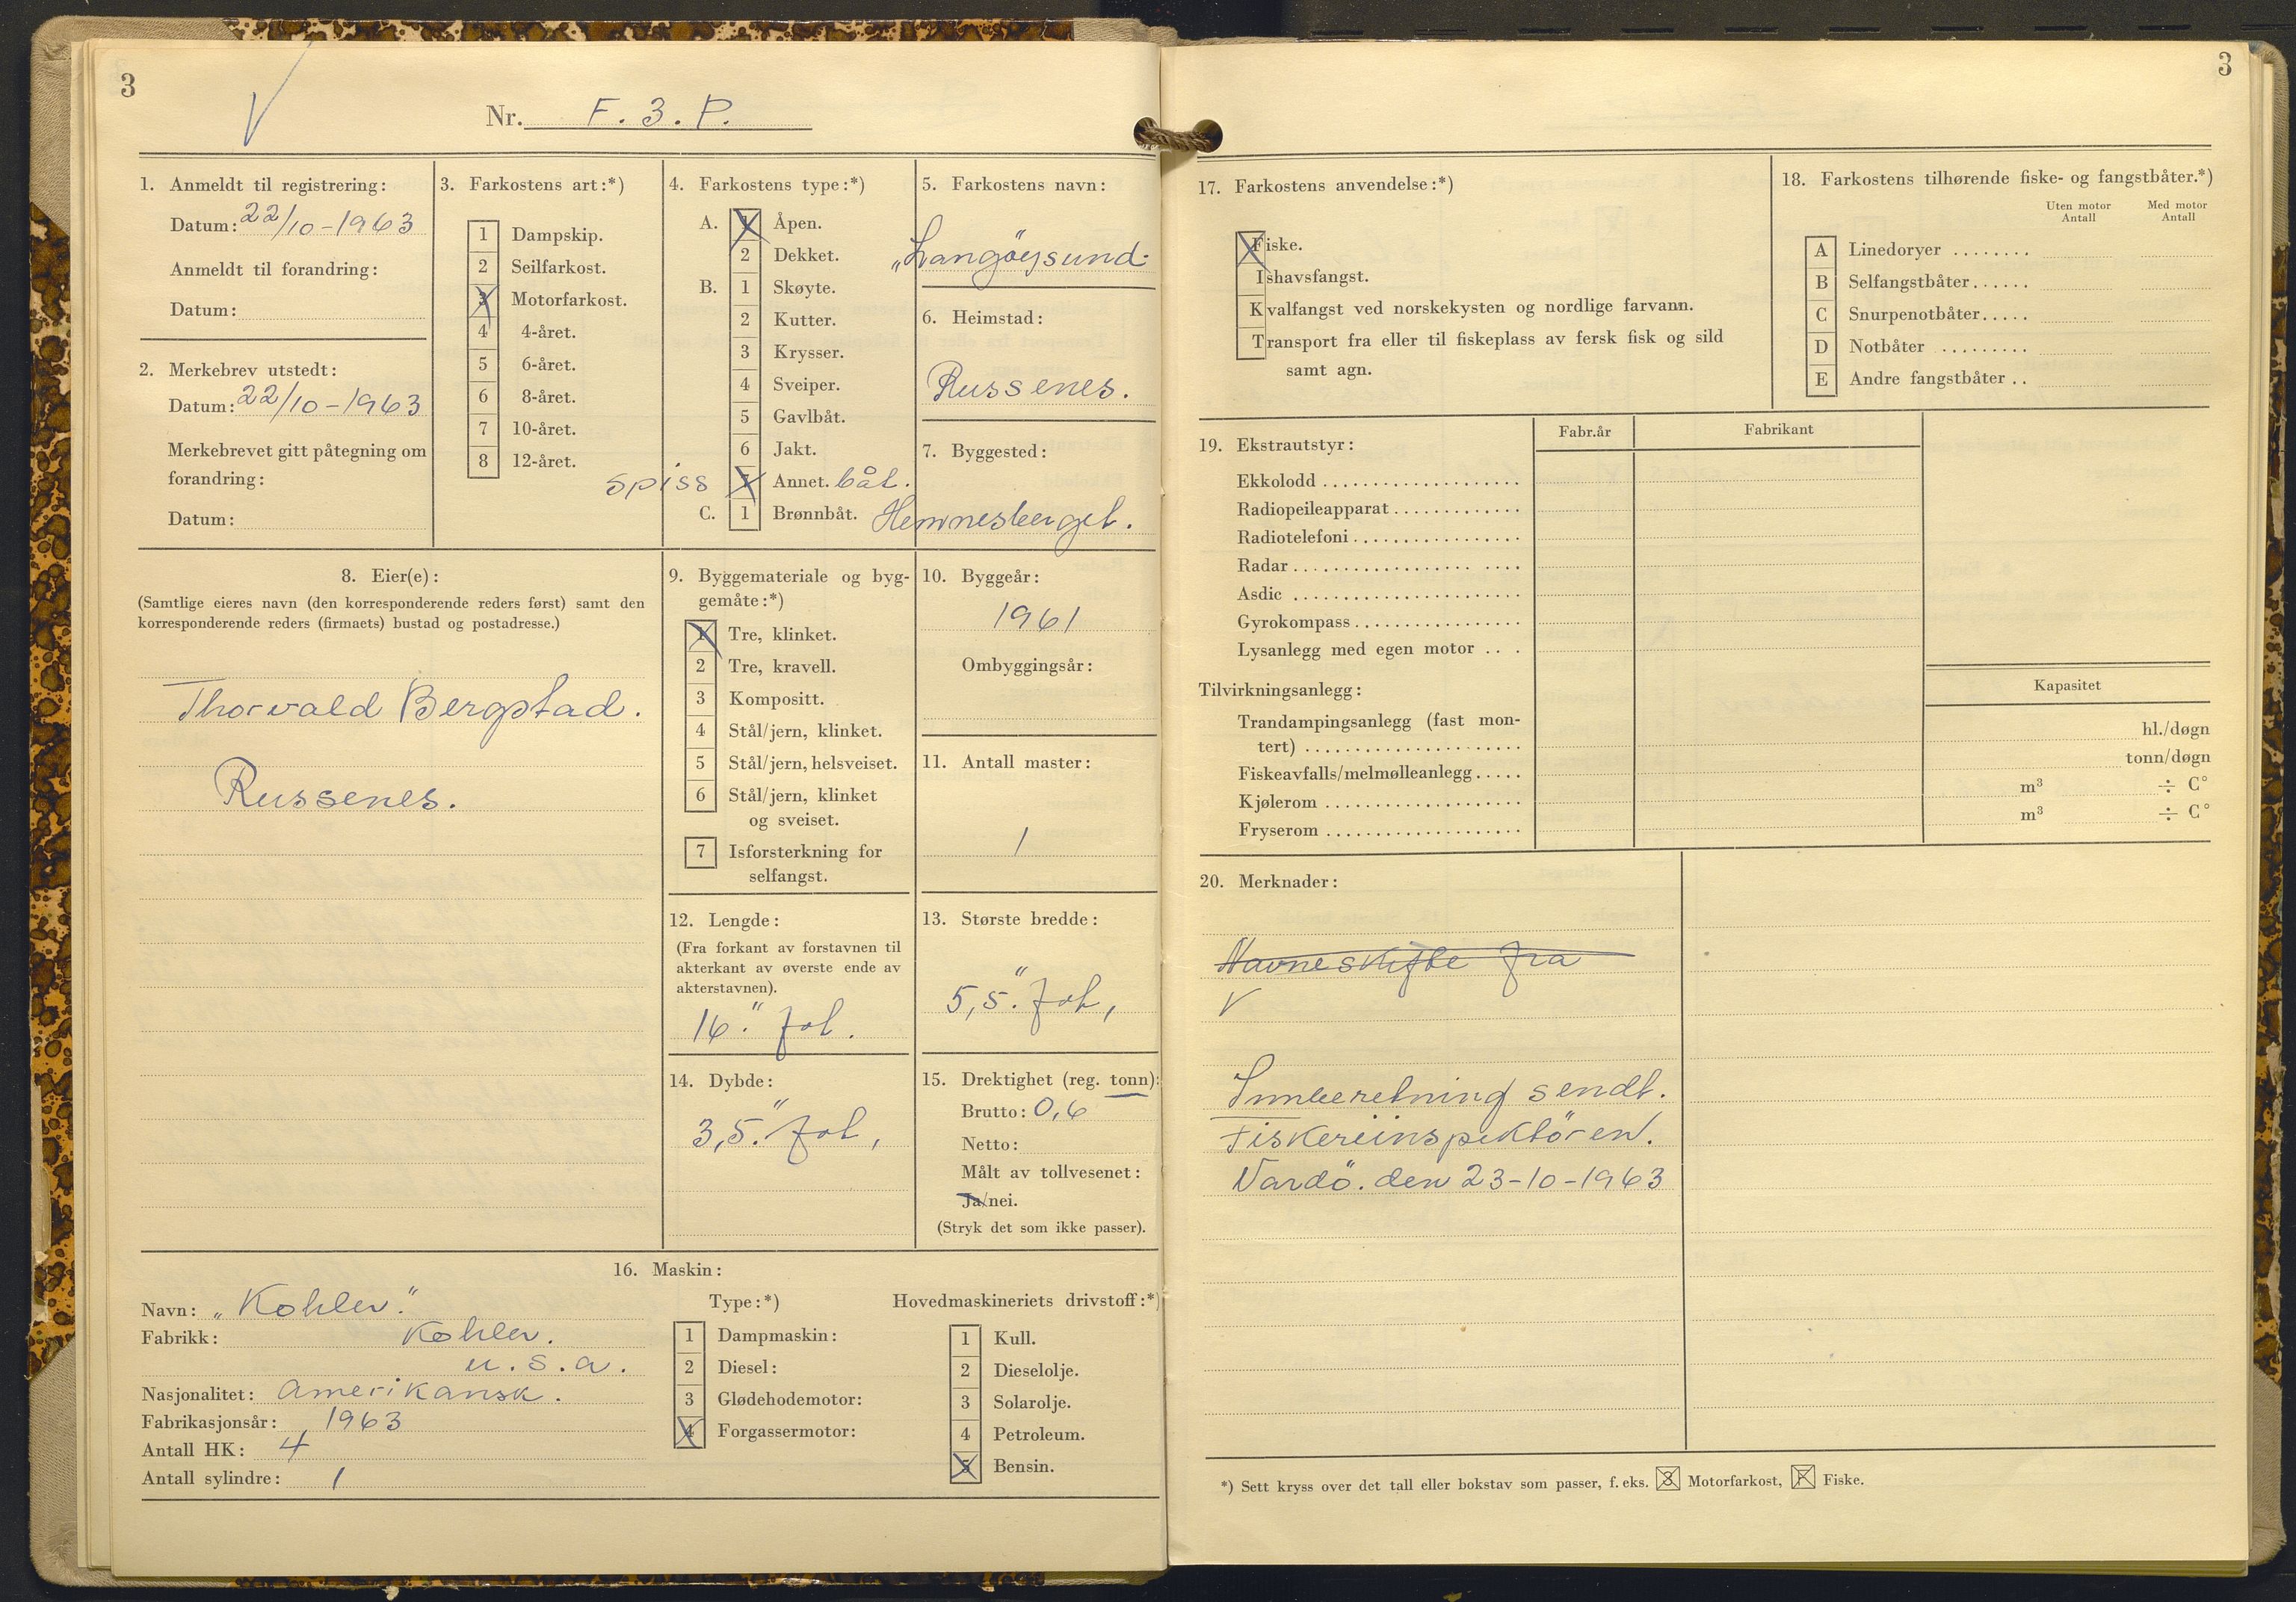 3
V
Nr. F. 3. P.
1. Anmeldt til registrering:
Datum: 22/10-1963
Anmeldt til forandring:
Datum:
2. Merkebrev utstedt:
Datum: 22/10-1963
Merkebrevet gitt påtegning om
forandring:
Datum:
3. Farkostens art:*)
1 Dampskip.
2 Seilfarkost.
3 Motorfarkost.
4 4-året.
5 6-året.
6 8-året.
7 10-året.
8 12-året.
4. Farkostens type:*)
A. 1 Åpen.
2 Dekket.
B. 1 Skøyte.
2 Kutter.
3 Krysser.
4 Sveiper.
5 Gavlbåt.
6 Jakt.
spiss 7 Annet. båt.
C. 1 Brønnbåt.
5. Farkostens navn:
„Langöysund.
6. Heimstad:
Russenes.
7. Byggested:
Hemnesberget.
8. Eier(e):
(Samtlige eieres navn (den korresponderende reders først) samt den
korresponderende reders (firmaets) bustad og postadresse.)
Thorvald Bergstad.
Russenes.
9. Byggemateriale og byg-
gemåte:*)
1 Tre, klinket.
2 Tre, kravell.
3 Kompositt.
4 Stål/jern, klinket.
5 Stål/jern, helsveiset.
6 Stål/jern, klinket
og sveiset.
7 Isforsterkning for
selfangst.
10. Byggeår:
1961
Ombyggingsår:
11. Antall master:
1
12. Lengde:
(Fra forkant av forstavnen til
akterkant av øverste ende av
akterstavnen).
16." fot.
13. Største bredde:
5,5." fot,
14. Dybde:
3,5." fot,
15. Drektighet (reg. tonn):
Brutto: 0,6
Netto:
Målt av tollvesenet:
Ja/nei.
(Stryk det som ikke passer).
16. Maskin:
Navn: „Kohler."
Fabrikk: Kohler.
u.s.a.
Nasjonalitet: amerikansk.
Fabrikasjonsår: 1963
Antall HK: 4
Antall sylindre: 1
Type:*)
1 Dampmaskin:
2 Diesel:
3 Glødehodemotor:
4 Forgassermotor:
Hovedmaskineriets drivstoff:*)
1 Kull.
2 Dieselolje.
3 Solarolje.
4 Petroleum.
5 Bensin.
3
17. Farkostens anvendelse:*)
Fiske.
Ishavsfangst.
Kvalfangst ved norskekysten og nordlige farvann.
Transport fra eller til fiskeplass av fersk fisk og sild
samt agn.
18. Farkostens tilhørende fiske- og fangstbåter.*)
Uten motor Med motor
Antall Antall
A Linedoryer ........
B Selfangstbåter......
C Snurpenotbåter.....
D Notbåter .........
E Andre fangstbåter ..
19. Ekstrautstyr:
Fabr.år Fabrikant
Ekkolodd ....................
Radiopeileapparat .............
Radiotelefoni .................
Radar .................. ....
Asdic .......................
Gyrokompass .................
Lysanlegg med egen motor ...
Tilvirkningsanlegg:
Kapasitet
Trandampingsanlegg (fast mon-
tert) ...................... hl./døgn
Fiskeavfalls/melmølleanlegg ..... tonn/døgn
Kjølerom .................... m³ ÷ C°
Fryserom .................... m³ ÷ C°
20. Merknader:
Navneskifte fra
V
Innberetning sendt.
Fiskeriinspektören.
Vardö. den 23-10-1963
*) Sett kryss over det tall eller bokstav som passer, f. eks. 3 Motorfarkost, F Fiske.